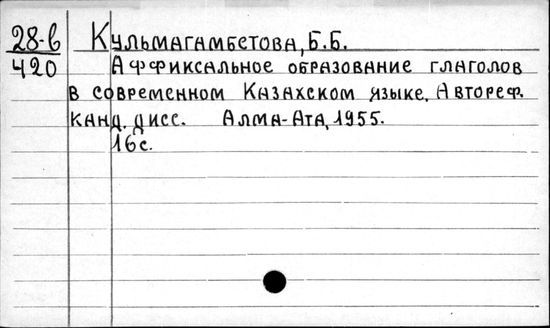 28-6 Кульмагамбетова, Б.Б.
420 Аффиксальное образование глаголов
в современном Казахском языке. Автореф.
канд. дисс. Алма-Ата, 1955.
16с.